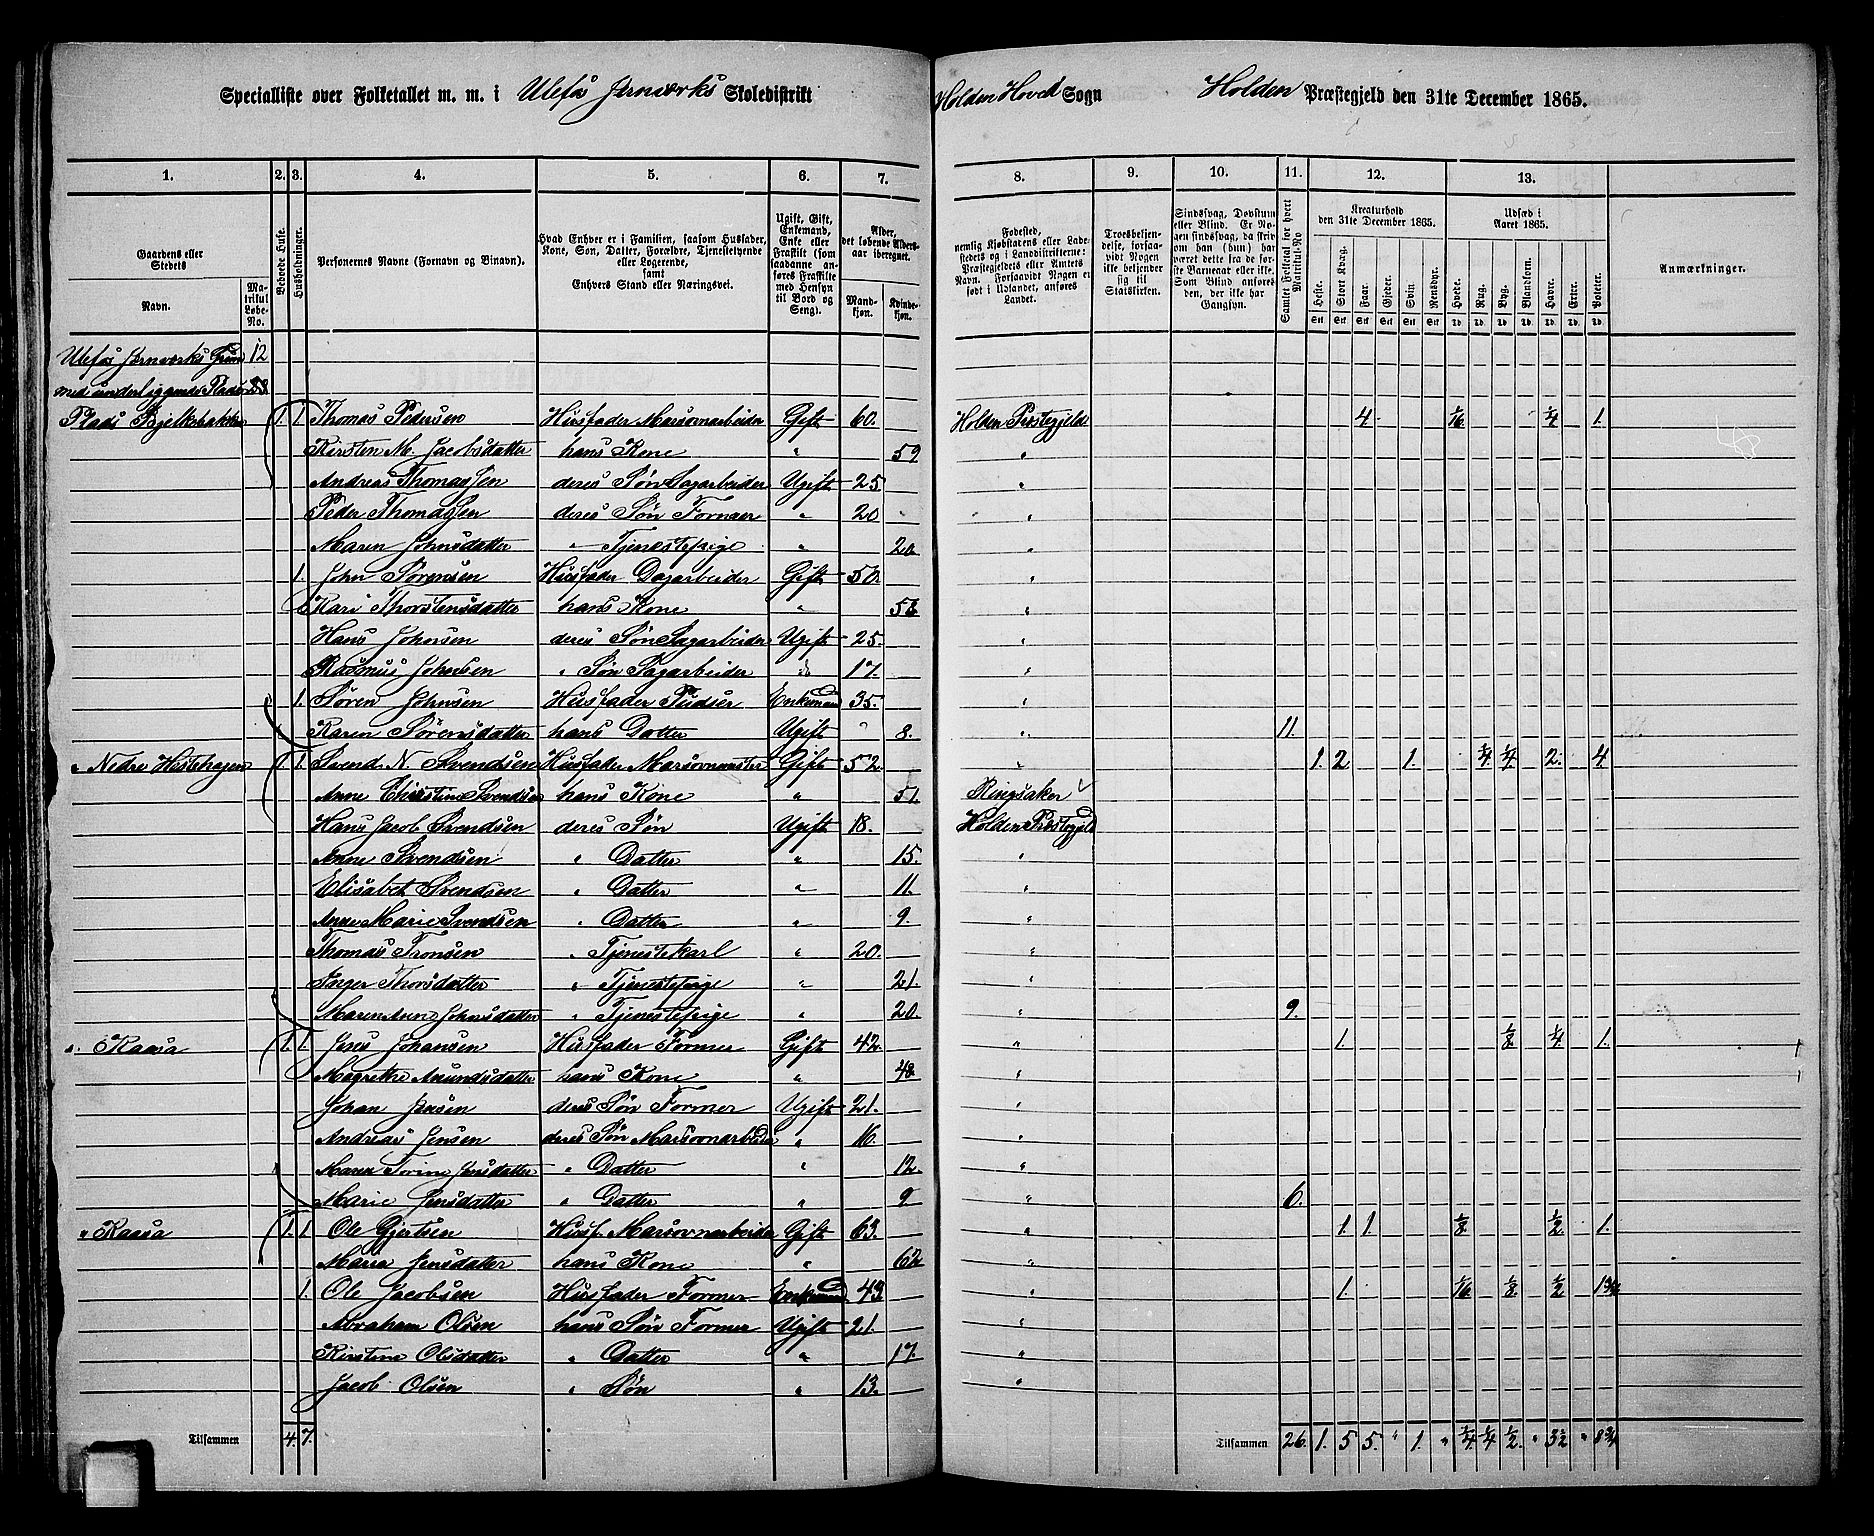 Specialliste over Folketallet m. m. i Ulefos Jernværks Skoledistrikt Holden Hoved Sogn Holden Præstegjeld den 31te December 1865.
1. 2. 3. 4. 5. 6. 7. 8. 9. 10. 11. 12. 13.
Gaardens eller Stedets
Navn. Matrikul Løbe-No.
Beboede Huse.
Husholdninger.
Personernes Navne (Fornavn og Binavn).
Hvad Enhver er i Familien, saasom Husfader, Kone, Søn, Datter, Forældre, Tjenestetyende eller Logerende, samt Enhvers Stand eller Næringsvei.
Ugift, Gift, Enkemand, Enke eller Fraskilt (som saadanne anføres Fraskilte med Hensyn til Bord og Seng).
Alder, det løbende Aldersaar iberegnet.
Mandkjøn. Kvindekjøn.
Fødested, nemlig Kjøbstadens eller Ladestedets og i Landdistrikterne: Præstegjeldets eller Amtets Navn. Forsaavidt Nogen er født i Udlandet, anføres Landet.
Troesbekjendelse, forsaavidt Nogen ikke bekjender sig til Statskirken.
Sindssvag, Døvstum eller Blind. Er Nogen sindssvag, da skrives om han (hun) har været dette fra de første Barneaar eller ikke. Som Blind anføres den, der ikke har Gangsyn.
Samlet Folketal for hvert Matrikul-No
Kreaturhold den 31te December 1865.
Heste. Stort Kvæg. Faar. Gjeder. Svin. Rensdyr.
Udsæd i Aaret 1865.
Hvede. Rug. Byg. Blandkorn. Havre. Erter. Poteter.
Anmærkninger.
Stk Stk Stk Stk Stk Stk Td. Td. Td. Td. Td. Td. Td.
Ulefos Jernværks Grund 12
med underliggende Pladse
Plads Bjelkebakken 1. 1. Thomas Pedersen Husfader Masovnarbeider Gift 60. Holden Præstegjeld 4 1/16 1/4 1.
Kirsten M. Jacobsdatter hans Kone " 59 "
Andreas Thomassen deres Søn Sagarbeider Ugift 25 "
Peder Thomassen deres Søn Formaer " 20 "
Maren Johnsdatter " Tjenestepige " 20. "
1. John Sørensen Husfader Dagarbeider Gift 50. "
Kari Thorstensdatter hans Kone " "
Hans Johnsen deres Søn Sagarbeider Ugift 25. "
Rasmus Johnsen " Søn Sagarbeider " 17. "
1. Søren Johnsen Husfader Pudser Enkemand 35. "
Karen Sørensdatter hans Datter Ugift " 8. " 11.
" Nedre Hestehagen 1. 1. Svend N. Svendsen Husfader Masovnmester Gift 52. " 1. 2 1. 1/4 1/4 2. 4
Anne Christine Svendsen hans Kone " 51. Ringsaker
Hans Jacob Svendsen deres Søn Ugift 18. Holden Præstegjeld
Anne Svendsen " Datter " 15. "
Elisabet Svendsen " Datter " 11. "
Anne Marie Svendsen " Datter " 9. "
Thomas Tronsen " Tjenestekarl " 20. "
Inger Thorsdatter " Tjenestepige " 21. "
Maren Anne Johnsdatter " Tjenestepige " 20. " 9.
" Kaasa 1. 1. Jens Johansen Husfader Former Gift 42. " 1. 1/8 1/4 1.
Magrethe Amundsdatter hans Kone " 48 "
Johan Jensen deres Søn Former Ugift 21. "
Andreas Jensen deres Søn Masovnarbeider " 16. "
Maren Torine Jensdatter " Datter " 12. "
Marie Jensdatter " Datter " 9 " 6.
" Kaasa 1. 1. Ole Gjertsen Husf. Masovnarbeider Gift 63. " 1. 1. 1/8 1/2 1.
Maria Jensdatter hans Kone " 62 "
1. Ole Jacobsen Husfader Former Enkemand 43 " 1. 1/16 1/8 1/2 1 3/4
Abraham Olsen hans Søn Former Ugift 21. "
Kirstine Olsdatter " Datter " 17. "
Jacob Olsen " Søn " 13. "
Tilsammen 4. 7. Tilsammen 26. 1. 5 5. " 1. " 1/4 1/4 1/2 " 3 1/2 " 8 3/4